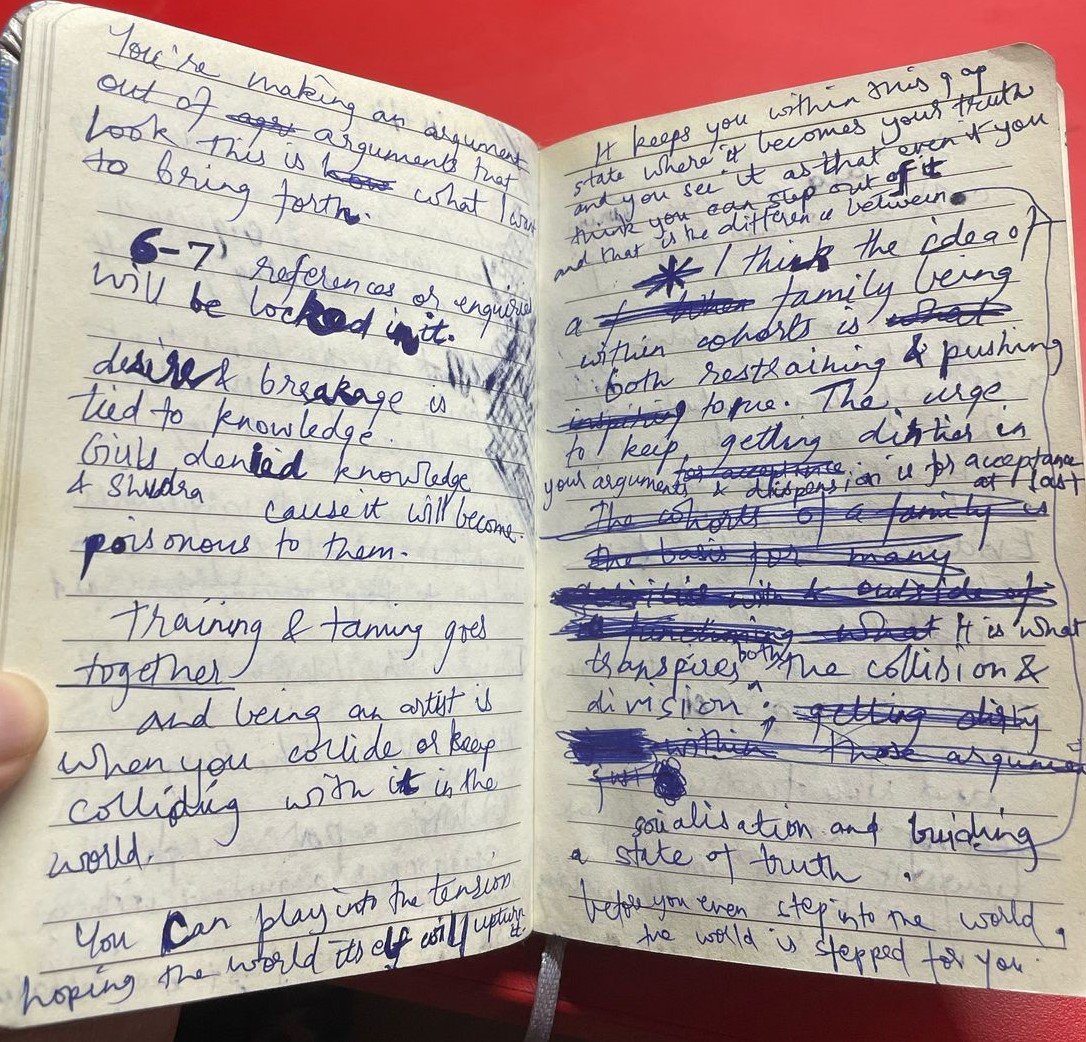 You're making an argument
out of agru arguments that
look this is how what I want
to bring forth.
6-7 references or enquiries
will be locked in it.
desire & breakage is
tied to knowledge.
Girls denied knowledge
& Shudra cause it will become
poisonous to them.
Training & taming goes
together
and being an artist is
when you collide or keep
colliding with it in the
world.
You Can play into the tension
hoping the world itself will upturn
it.
It keeps you within this gap
state where it becomes your truth
and you see it as that even if you
think you can step out of it
and that is the difference between
* I think the idea of
a family being
within cohorts is what
both restraining & pushing
inspiring to me. The urge
to keep getting dirtier in
your arguments for acceptance & dispension is for acceptance
at last
The cohorts of a family is
the basis for many
with & outside of
functioning what It is what
transpires both the collision &
division. getting dirty
within these argumen
just
socialisation and building
a state of truth.
before you even step into the world,
the world is stepped for you.